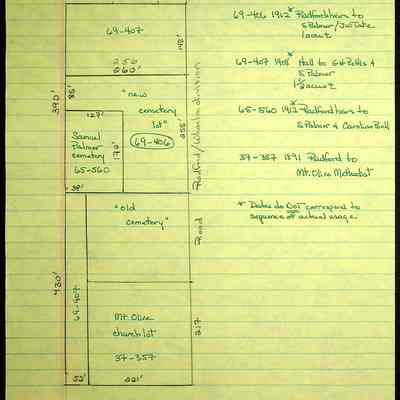 69-407
142'
256
260'
390'
85'
"new
cemetery
lot"
69-406
127'
Samuel
Palmer
cemetery
65-560
170'
255'
38'
Radford/Wharton division
"old
cemetery"
Road
430'
69-407
Mt. Olive
church lot
37-357
217
55'
221'
69-406 1912* Radford heirs to
S Palmer/
1 acre
69-407 1908* Hall to
S Palmer
1 1/2 acres
65-560 1912* Radford heirs to
S Palmer & Caroline Bell
37-357 1891 Radford to
Mt. Olive Methodist
* Dates do NOT correspond to
sequence of actual usage